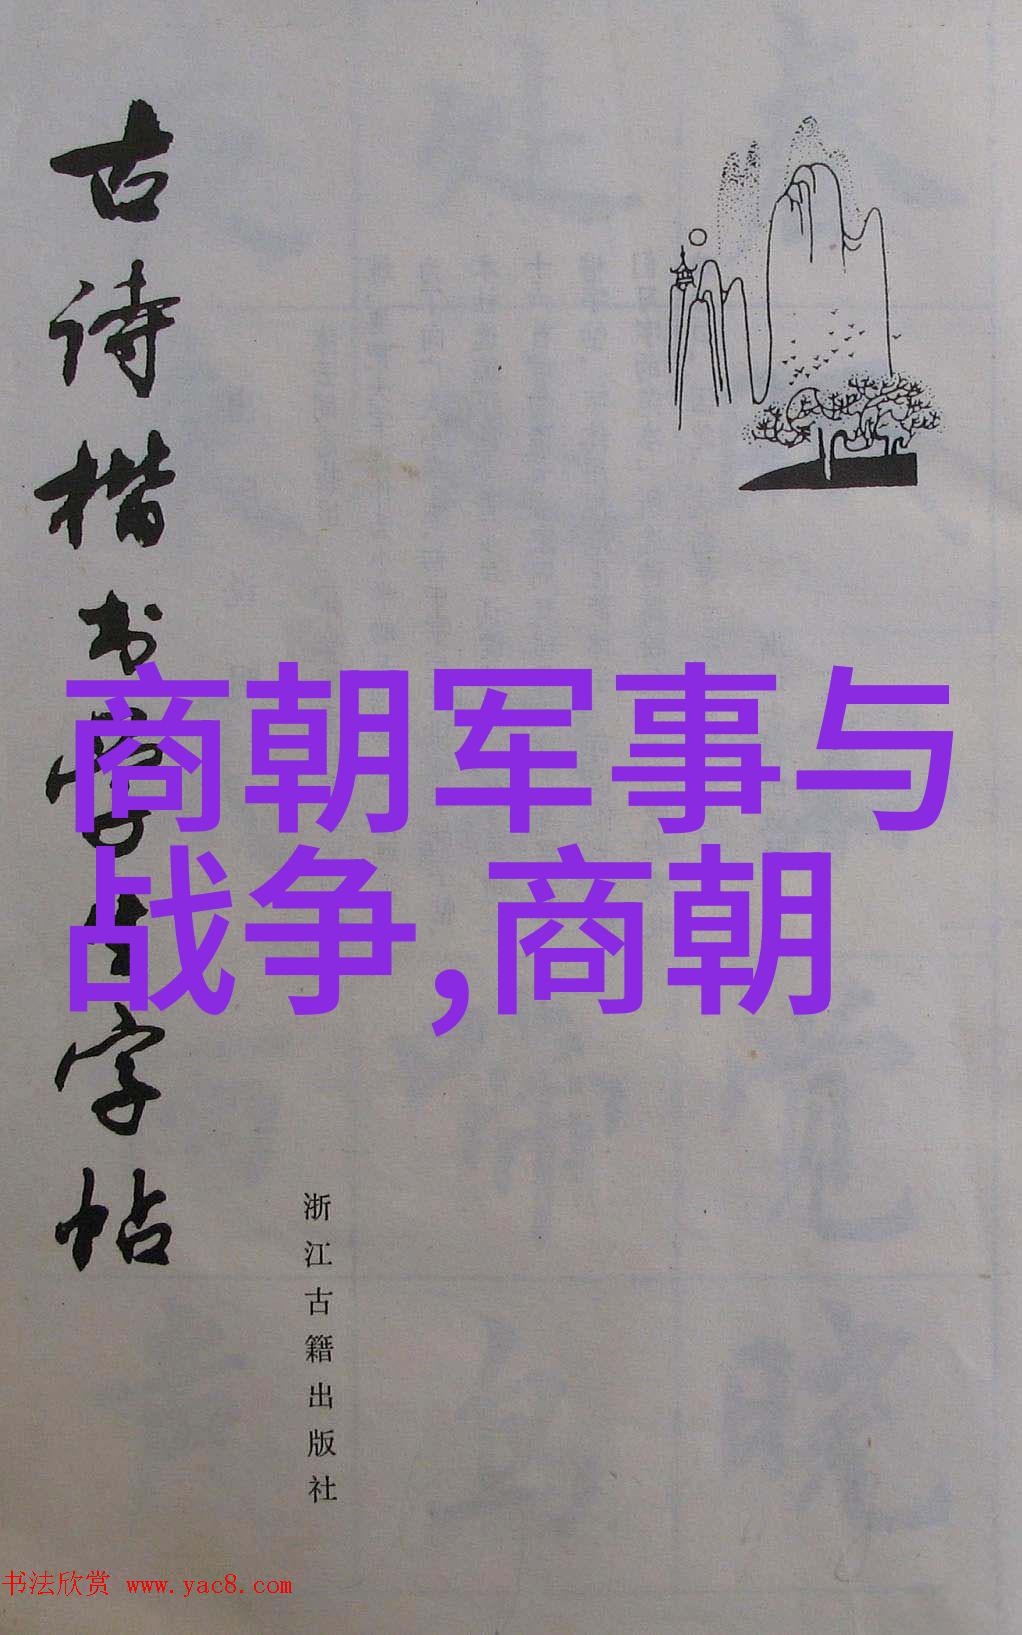 古诗楷书学生字帖
商朝军事与
战争,商朝
浙江古籍出版社
书法欣赏 www.yac8.com